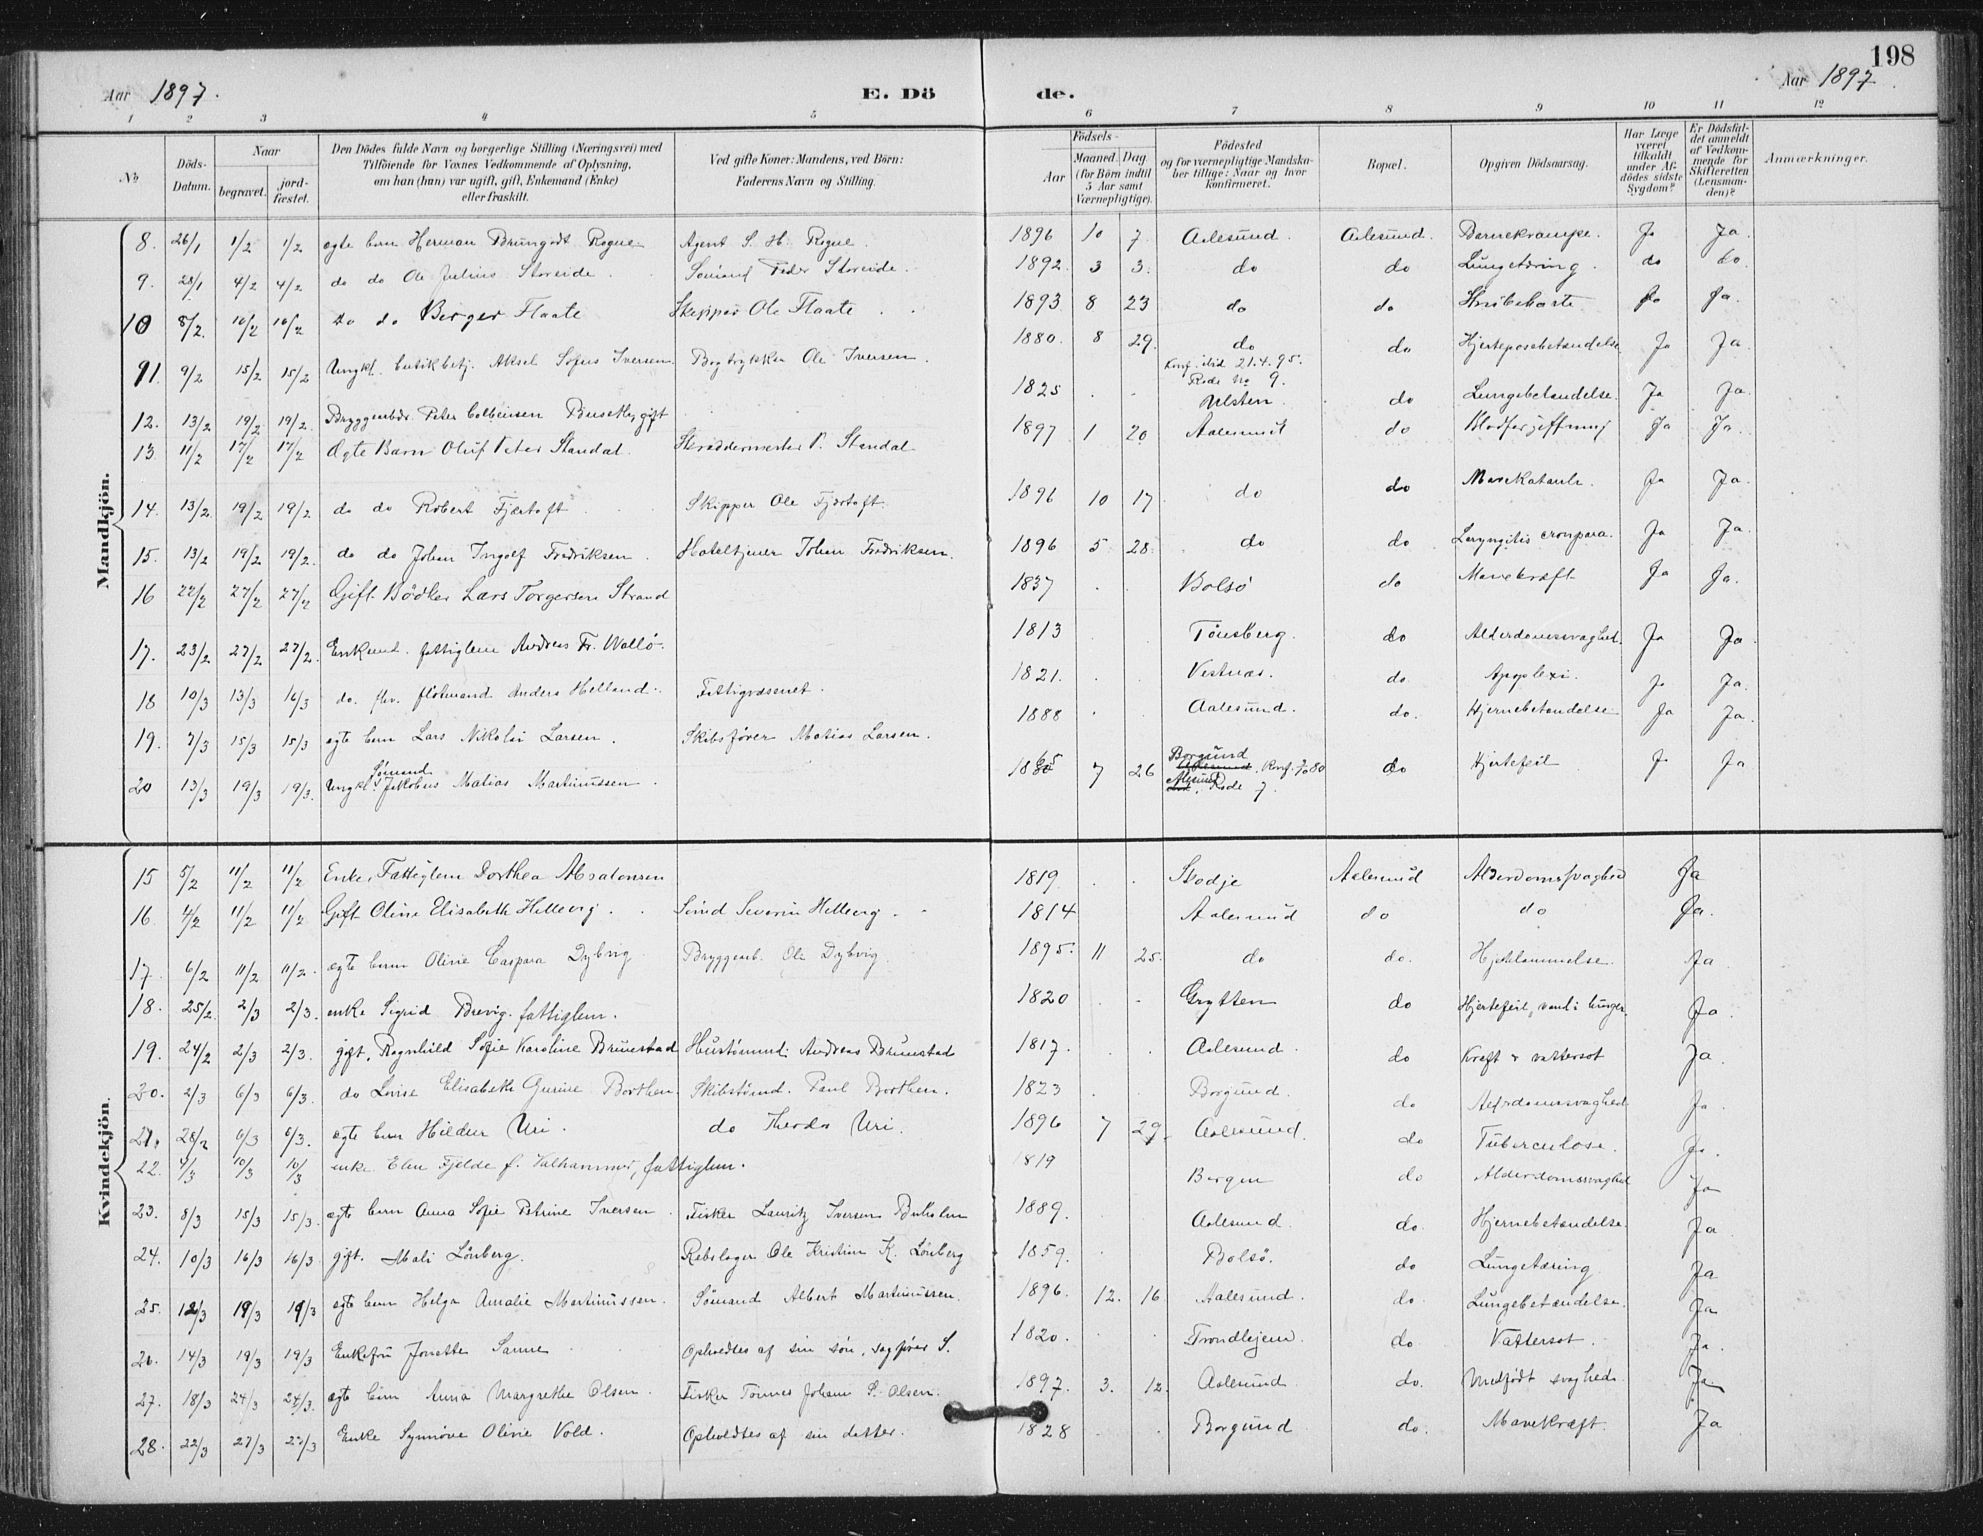 198
Aar 1897. E. Dö de. Aar 1897
1 2 3 4 5 6 7 8 9 10 11 12
No Döds-Datum. Naar begravet. jord-fæstet. Den Dödes fulde Navn og borgerlige Stilling (Næringsvei) med Tilföiende for Voxnes Vedkommende af Oplysning, om han (hun) var ugift, gift, Enkemand (Enke) eller fraskilt. Ved gifte Koner: Mandens, ved Börn: Faderens Navn og Stilling. Födsels- Aar Maaned. Dag (for Börn indtil 5 Aar samt Værnepligtige). Födested og for værnepligtige Mandskaber tillige: Naar og hvor konfirmeret. Bopæl. Opgiven Dödsaarsag. Har Læge været tilkaldt under Afdödes sidste Sygdom? Er Dödsfaldet anmeldt af Vedkommende for Skifteretten (Lensmanden)? Anmærkninger.
Mandkjön.
8. 26/1 1/2 1/2 ægte barn Herman Brungodt Rogne Agent S. H. Rogne. 1896 10 7 Aalesund. Aalesund. Barnekrampe. Ja Ja.
9. 28/1 4/2 4/2 do do Ole Julius Storeide. Sömand Peder Storeide. 1892. 3 3. do do Lungetæring. do do.
10 8/2. 16/2 16/2 do do Berger Flaate Skipper Ole Flaate 1893 8 23 do do Strubehoste Ja Ja.
11. 9/2 15/2 15/2 Ungkl. butikbetj. Aksel Sofus Iversen. Bogtrykker Ole Iversen. 1880. 8 29. do do Hjerteposebetændelse Ja Ja.
Konf. 21.4.95. Rode No 9.
12. 13/2 19/2 19/2. Bryggearb. Peter Colbensen gift 1825 . . Ulsten. do Lungebetændelse. Ja Ja.
13. 11/2 17/2 17/2 Ægte Barn Oluf Peter Standal. Skræddermester P. Standal 1897 1 20 Aalesund do Blodforgiftning Ja Ja.
14. 13/2. 19/2 19/2 do do Robert Fjærtoft Skipper Ole Fjærtoft. 1896 10 17 do do Mavekatarh. Ja Ja.
15. 13/2 19/2 19/2. do do Johan Ingolf Fredriksen. Hoteltjener Johan Fredriksen. 1896 5 28. do do Laryngitis crouposa. Ja Ja.
16 22/2 27/2 27/2 Gift. Bödker Lars Torgersen Strand 1837 . Bolsö do Mavekræft. Ja Ja.
17. 23/2 27/2 27/2. Enkemd. fattiglem Andreas Fr. Wallö. 1813 . . Tönsberg. do Alderdomssvaghed. Ja Ja.
18 10/3 13/3 16/3 do. Anders Helland. Fattigvæsenet. 1821. . . Vestnæs. do Apoplexi. Ja Ja.
19. 7/3 15/3 15/3 ægte barn Lars Nikolai Larsen. Skibsförer Matias Larsen. 1888 . Aalesund. do. Hjernebetændelse Ja Ja.
20 13/3 19/3 19/3. Ungkl. Sömand Jakobus Matias Martinussen. 7 26 Borgund Konf. Rode 7. do Hjertefeil Ja Ja
Kvindekjön.
15 5/2 11/2 11/2 Enke, Fattiglem Dorthea Absalonsen 1819. . . Skodje Aalesund Alderdomssvaghed Ja
16. 4/2 11/2 11/2 Gift Oline Elisabeth Helleberg. Severin Helleberg. 1814 Aalesund do do Ja.
17. 6/2 11/2 11/2. ægte barn Olivie Caspara Dybvig Bryggearb. Ole Dybvig. 1895. 11 25. do do. Hjertelammelse. Ja
18. 25/2. 2/3 2/3. enke Sigrid Brevig. fattiglem. 1820 . . Grytten do Hjertefeil, vand i lunger. Ja.
19. 24/2 2/3 2/3. gift. Ragnhild Sofie Karoline Brunstad Andreas Brunstad 1817. . . Aalesund. do Kræft & vattersot Ja.
20. 2/3 6/3 6/3. do Lovise Elisabeth Gurine Borthen. Skibstömmd. Paul Borthen. 1823 . . Borgund. do Alderdomssvaghed Ja.
21. 28/2 6/3 6/3. ægte barn Hildur Uri. do Theodor Uri. 1896 7 29. Aalesund. do Tuberculose. Ja.
22. 4/3 10/3 10/3 enke Elen Fjelde f. fattiglem. 1819 Bergen do Alderdomssvaghed Ja
23. 8/3 15/3 15/3. ægte barn Anna Sofie Petrine Iversen Fisker Lauritz Iversen Buholm 1889. . . Aalesund. do. Hjernebetændelse. Ja
24. 10/3 16/3 16/3 gift. Mali Lönberg. Rebslager Ole Kristian K. Lönberg 1859. . . Bolsö. do Lungetæring Ja
25. 12/3 19/3 19/3 ægte barn Helga Amalie Martinussen. Sömand Albert Martinussen. 1896. 12. 16. Aalesund. do. Lungebetændelse. Ja
26. 14/3 19/3 19/3 Enkefru Jonette Sanne Opholdtes af sin sön, sagförer S. 1820. . . Trondhjem. do. Vattersot. Ja.
27. 18/3 24/3 24/3. ægte barn Anna Margrethe Olsen. Fisker Tönnes Johan S. Olsen. 1897. 3. 12. Aalesund do. Medfödt svaghed. Ja
28. 22/3 27/3 27/3 Enke Synnöve Olivie Vold. Opholdtes af sin datter. 1828 . . Borgund do. Mavekræft. Ja